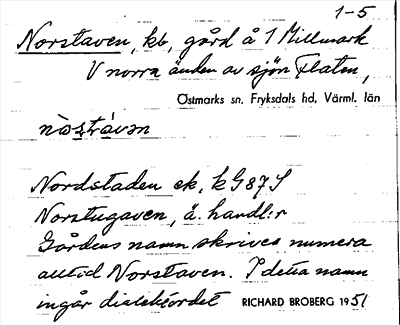 1-5
Norstaven, kb, gård å 1 Millmark
V norra änden av sjön Flaten,
Östmarks sn. Fryksdals hd, Värml. län
Nordstaden ek, k G 87 S
Norstugaven, ä. handl:r
Gårdens namn skrives numera
alltid Norstaven. I detta namn
ingår dialektordet RICHARD BROBERG 1951